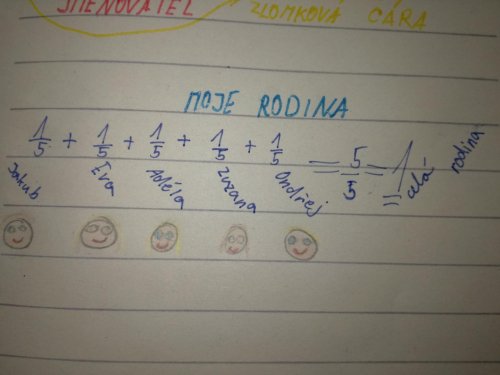 JMENOVATEL ZLOMKOVÁ ČÁRA
MOJE RODINA
1/5 + 1/5 + 1/5 + 1/5 + 1/5 = 5/5 = 1 celá rodina
Jakub Eva Adéla Zuzana Ondřej